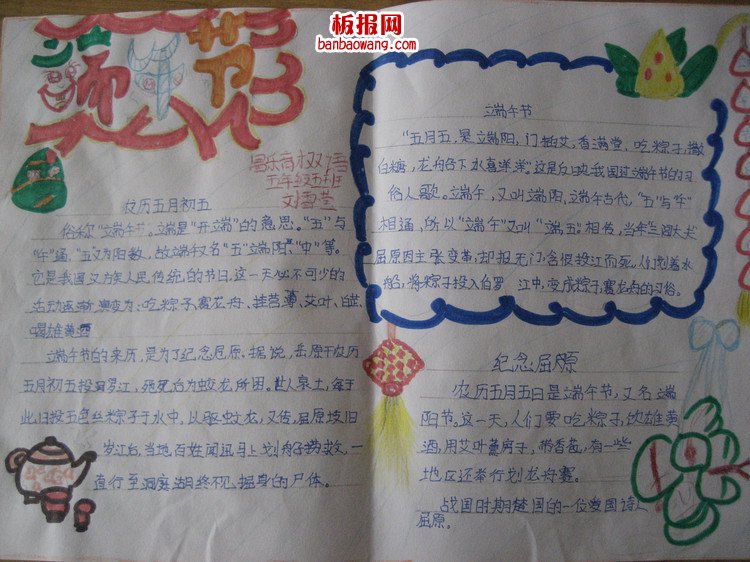 板报网
banbaowang.com
端午节
昌乐高
五年级五班
农历五月初五
俗称"端午节。端是"开端"的意思。"五"与
"午"通,"五"又为阳数,故端午又名"五"端阳"、"中"等。
它是我国汉族人民传统的节日,这一天必不可少的
活动逐渐演变为、吃粽子、赛龙舟、挂菖蒲、艾叶、白芷、
喝雄黄酒
端午节的来历,是为了纪念屈原。据说,屈原于农历
五月初五投汨罗江,死后为蛟龙所困。世人哀之,每于
此日投五色丝粽子于水中,以驱蛟龙,又传,屈原投汨
罗江后,当地百姓闻讯马上划船捞救,一
直行至洞庭湖终不见屈原的尸体。
端午节
"五月五,是端阳,门插艾,香满堂,吃粽子,撒
白糖,龙舟下水喜洋洋。"这是反映我国过端午节的习
俗人歌。端午,又叫端阳,端午古代,"五"与"午"
相通,所以"端午"又叫"端五。相传,当年三闾大夫
屈原因主张变革,却报无门,含恨投江而死。人们划着水
船,将粽子投入白罗 江中,变成粽子赛龙舟的习俗。
纪念屈原
农历五月五日是端午节,又名端
阳节。这一天,人们要吃粽子,饮雄黄
酒,用艾叶薰房子,带香苞,有一些
地区还举行划龙舟赛。
战国时期楚国的一位爱国诗人
屈原。